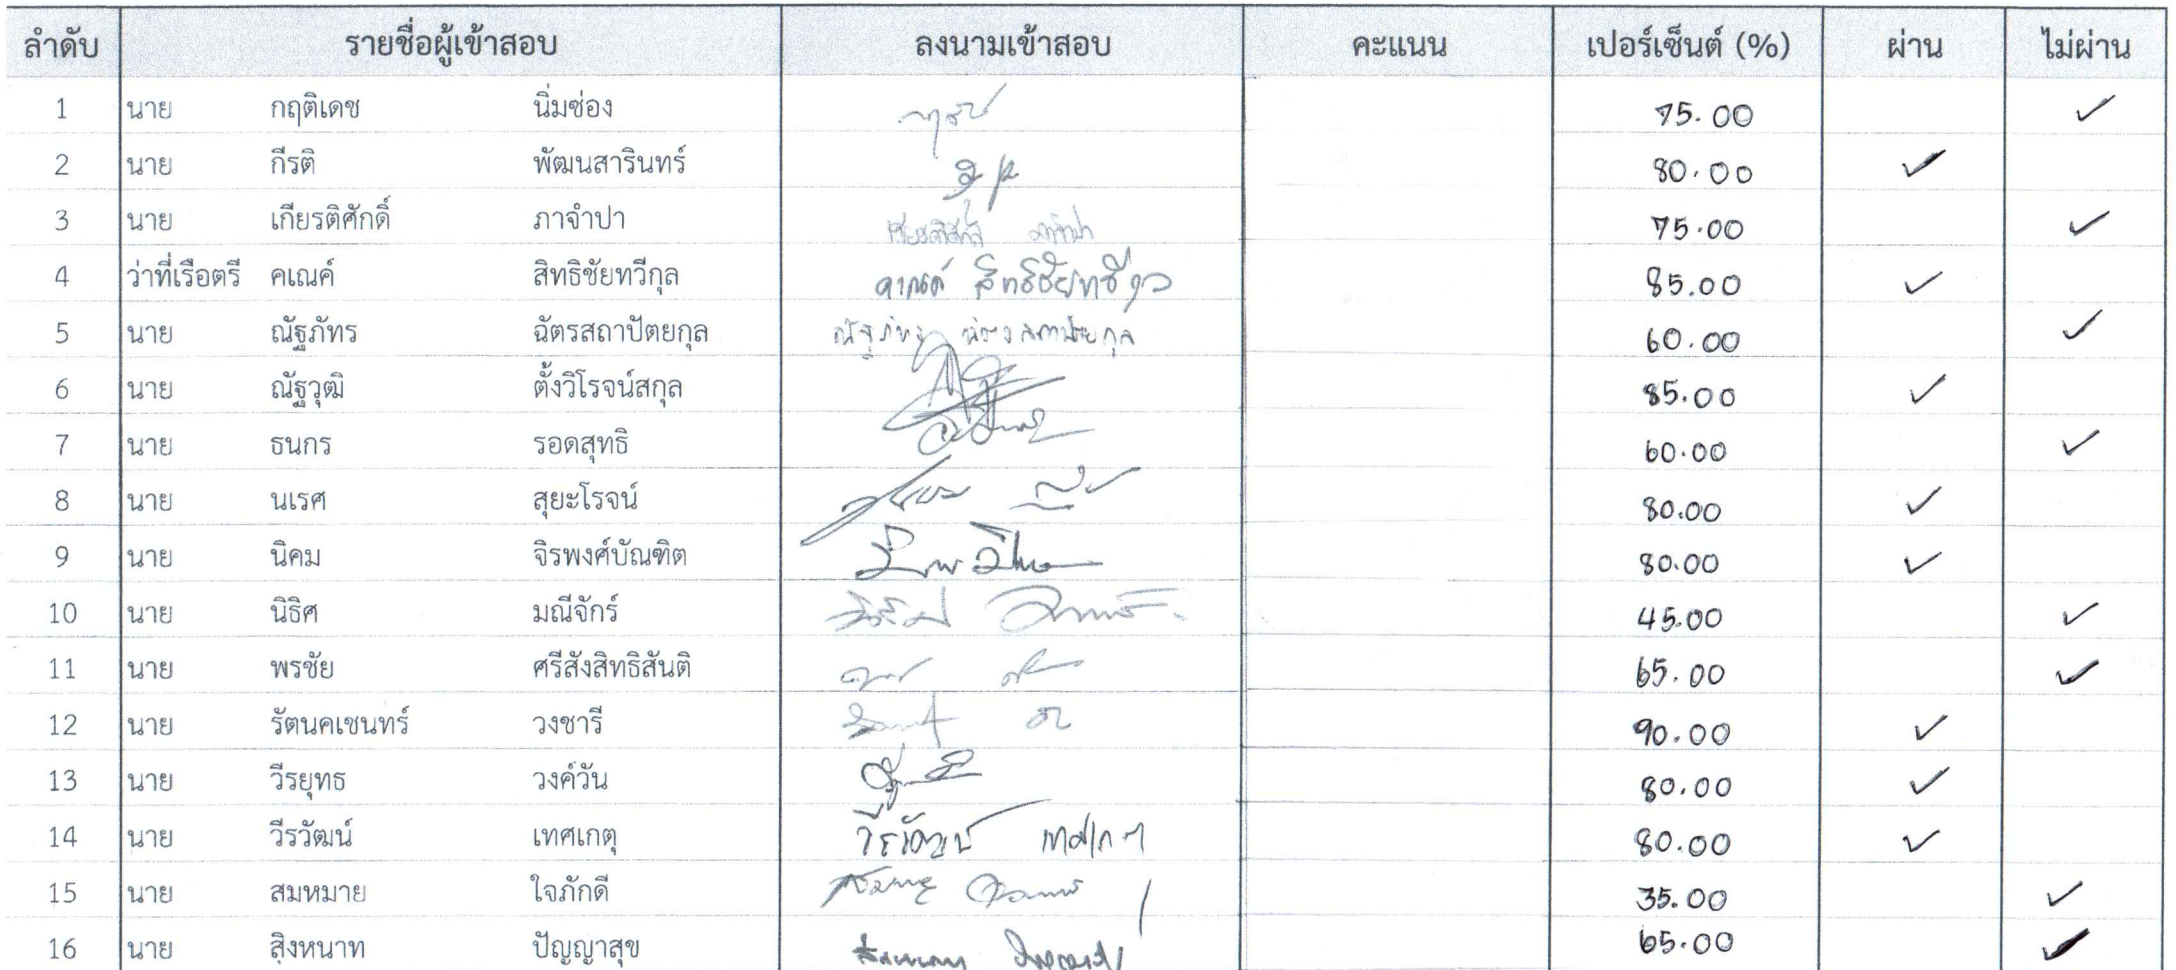 ลำดับ รายชื่อผู้เข้าสอบ ลงนามเข้าสอบ คะแนน เปอร์เซ็นต์ (%) ผ่าน ไม่ผ่าน
1 นาย กฤติเดช นิ่มซ่อง 75.00 ✓
2 นาย กีรติ พัฒนสารินทร์ 80.00 ✓
3 นาย เกียรติศักดิ์ ภาจำปา เกียรติศักดิ์ ภาจำปา 75.00 ✓
4 ว่าที่เรือตรี คเณค์ สิทธิชัยทวีกุล คเณค์ สิทธิชัยทวีกุล 85.00 ✓
5 นาย ณัฐภัทร ฉัตรสถาปัตยกุล ณัฐภัทร ฉัตรสถาปัตยกุล 60.00 ✓
6 นาย ณัฐวุฒิ ตั้งวิโรจน์สกุล 85.00 ✓
7 นาย ธนกร รอดสุทธิ 60.00 ✓
8 นาย นเรศ สุยะโรจน์ 80.00 ✓
9 นาย นิคม จิรพงศ์บัณฑิต 80.00 ✓
10 นาย นิธิศ มณีจักร์ 45.00 ✓
11 นาย พรชัย ศรีสังสิทธิสันติ 65.00 ✓
12 นาย รัตนคเชนทร์ วงชารี 90.00 ✓
13 นาย วีรยุทธ วงค์วัน 80.00 ✓
14 นาย วีรวัฒน์ เทศเกตุ วีรวัฒน์ เทศเกตุ 80.00 ✓
15 นาย สมหมาย ใจภักดี 35.00 ✓
16 นาย สิงหนาท ปัญญาสุข 65.00 ✓